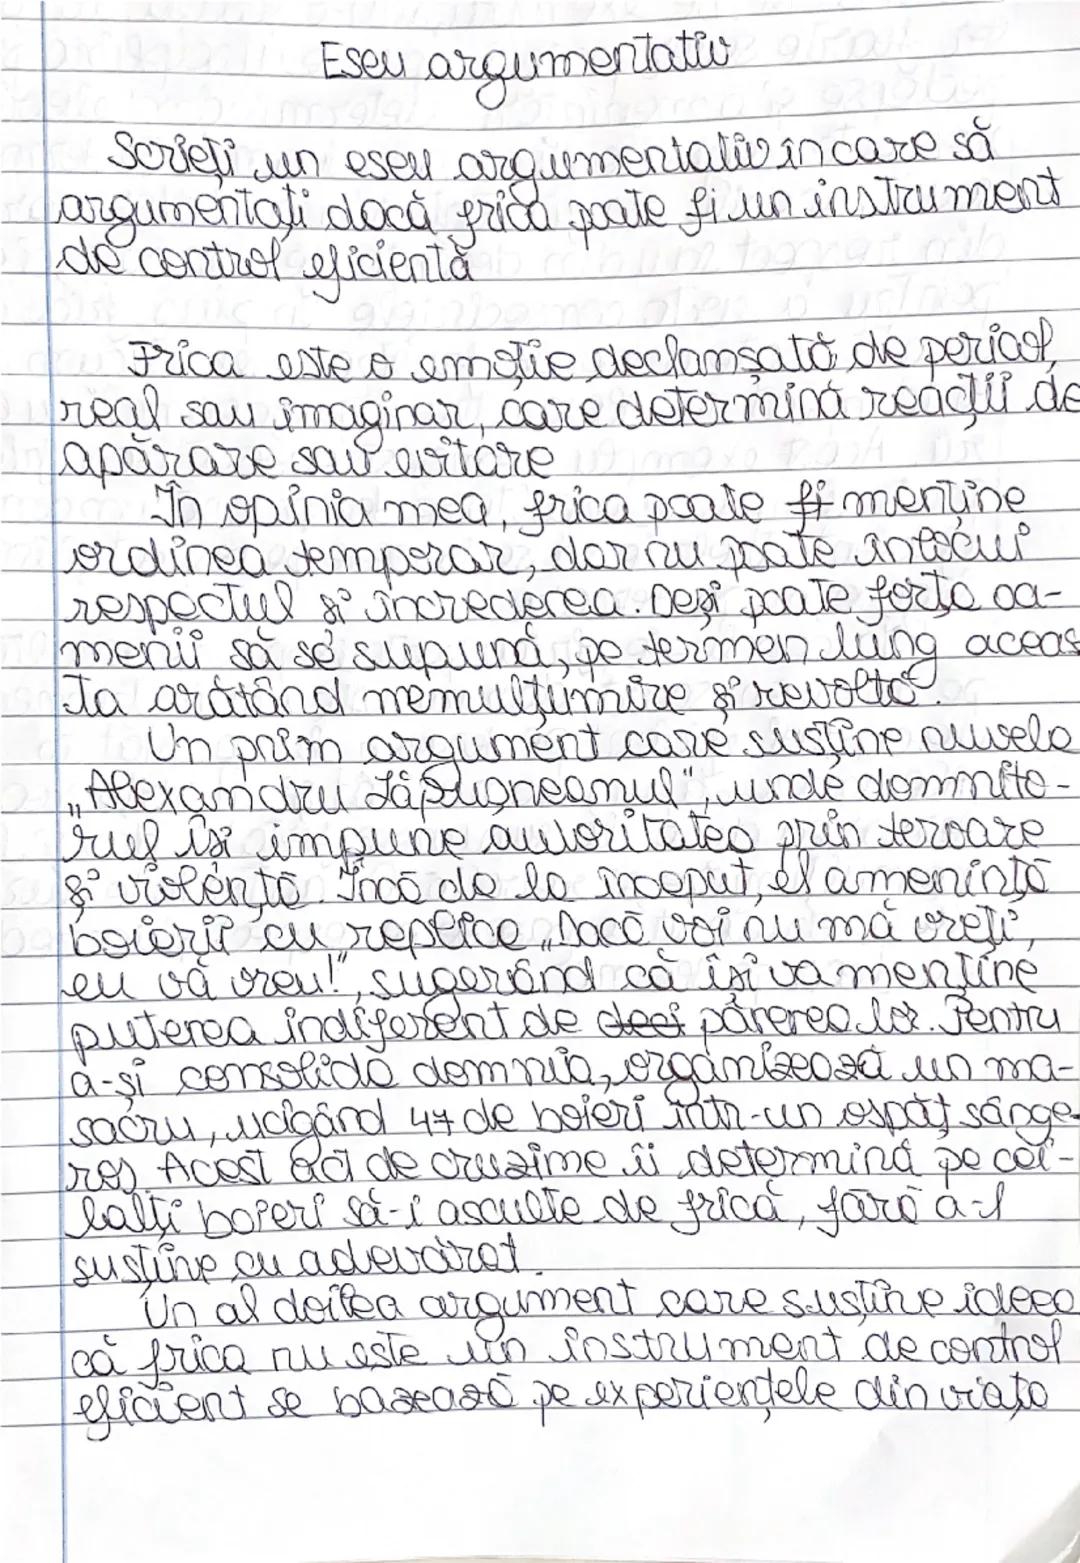 Eseu argumentativ
Scrieți un eseu argumentativ in care să
argumentați dacă frica poate fi un instrument
de control eficientă
Frica este o emoție declamsată de pericol
real sau imaginar, care determină reacții de
apărare sau evitare
În opinia mea, frica poate fi menține
ordinea temporar, dar nu poate înlocui
respectul și încrederea. Deși poate forța oa-
menii să se supună, pe termen lung aceas
ta arătând nemulțumire și revoltă.
Un prim argument care susține nuvela
„Alexandru Lăpușneanul", unde domnito-
rul își impune autoritatea prin teroare
și violență. Încă de la început, el amenință
boierii cu replica „Dacă voi nu mă vreți,
eu vă vreu!", sugerând că își va menține
puterea indiferent de deci părerea lor. Pentru
a-și consolida domnia, organizează un ma-
sacru, ucigând 47 de boieri într-un ospăț sânge-
ros. Acest act de cruzime îi determină pe cei-
lalți boieri să-i asculte de frică, fără a-l
susține cu adevărat.
Un al doilea argument care susține ideea
că frica nu este un instrument de control
eficient se bazează pe experiențele din viața